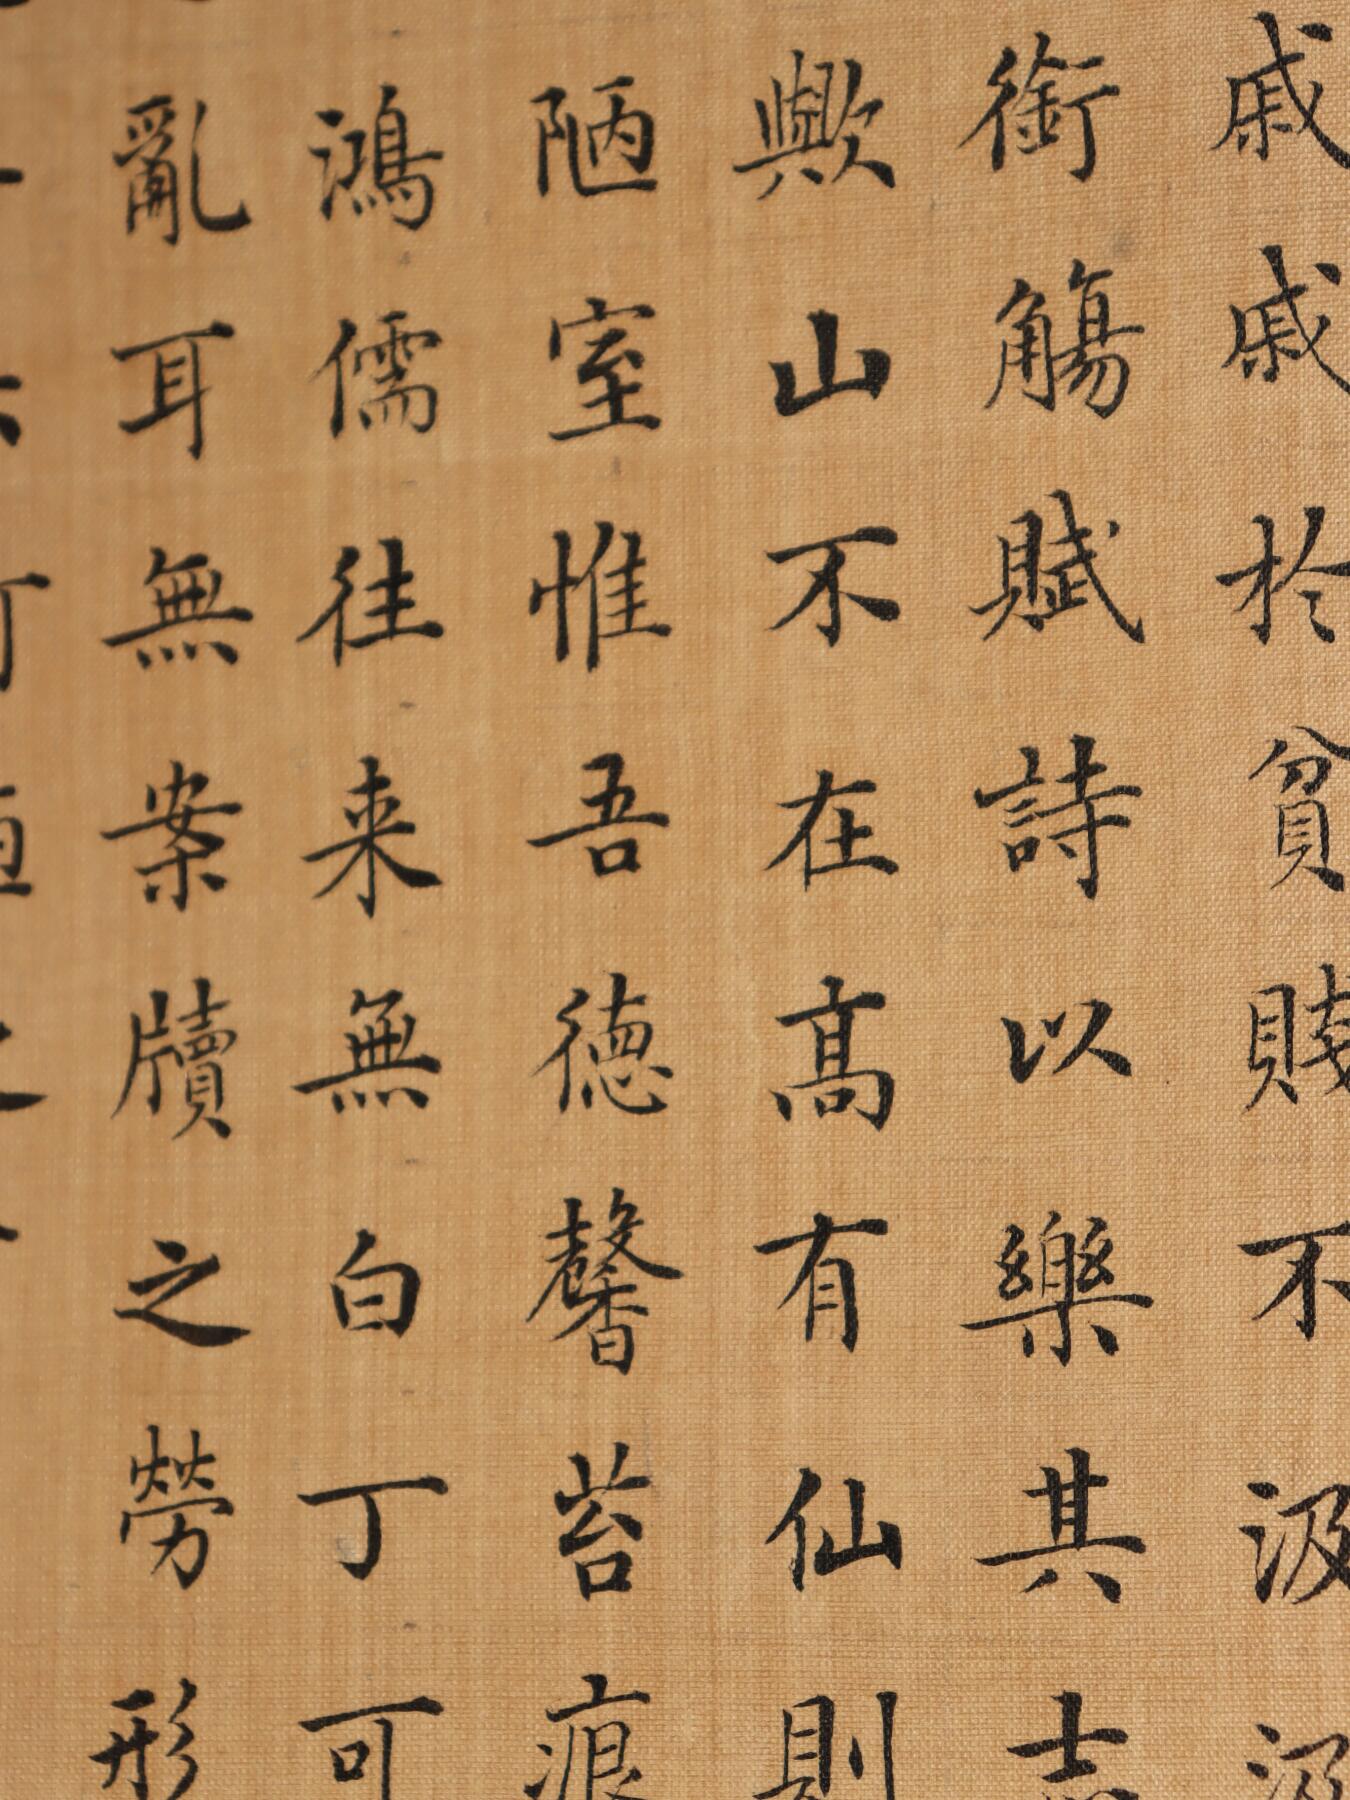 戚戚於貧賤不汲汲
銜觴賦詩以樂其志
歟山不在高有仙則
陋室惟吾德馨苔痕
鴻儒往来無白丁可
亂耳無案牘之勞形